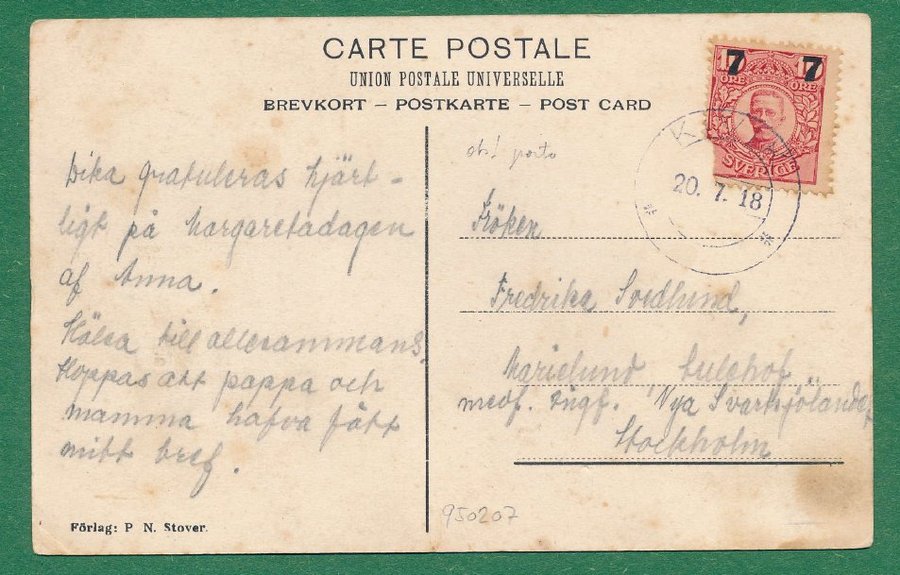 CARTE POSTALE
UNION POSTALE UNIVERSELLE
BREVKORT – POSTKARTE – POST CARD
7 7
10
ÖRE ÖRE
SVERIGE
20. 7. 18
gratuleras hjärt-
ligt på Margaretadagen
af Anna.
Hälsa till allesammans.
Hoppas att pappa och
mamma hafva fått
mitt bref.
porto
Fröken
Fredrika Svedlund,
Marielund
Nya
Stockholm
950207
Förlag: P N. Stover.